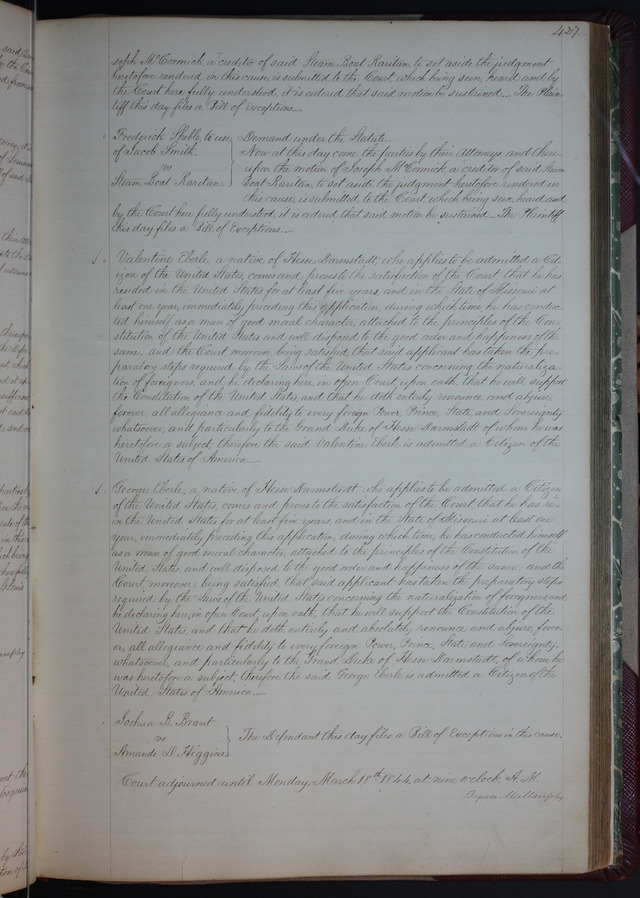 427.
soph McCormick, a creditor of said Steam Boat Raritan, to set aside the judgment
heretofore rendered in this cause, is submitted to the Court, which being seen, heard and by
the Court here fully understood, it is ordered that said motion be sustained. The Plain-
tiff this day files a Bill of Exceptions.
Frederick to use
of Jacob Smith.
vs
Steam Boat Raritan.
Demand under the Statute.
Now at this day come the parties by their Attorneys, and there-
upon the motion of Joseph McCormick a creditor of said Steam
Boat Raritan, to set aside the judgment heretofore rendered in
this cause, is submitted to the Court which being seen, heard and
by the Court here fully understood, it is ordered that said motion be sustained. The Plaintiff
this day files a Bill of Exceptions.
Valentine Eberle, a native of Hesse Darmstadt, who applies to be admitted a Cit-
izen of the United States, comes and proves to the satisfaction of the Court, that he has
resided in the United States for at least five years, and in the State of Missouri at
least one year, immediately preceding this application, during which time he has conduc-
ted himself as a man of good moral character, attached to the principles of the Con-
stitution of the United States and well disposed to the good order and happiness of the
same, and the Court moreover, being satisfied that said applicant has taken the pre-
paratory steps required by the Laws of the United States concerning the naturaliza-
tion of foreigners, and he declaring here, in open Court, upon oath, that he will support
the Constitution of the United States, and that he doth entirely renounce and abjure,
forever, all allegiance and fidelity to every foreign Power, Prince, State, and Sovereignty
whatsoever, and particularly to the Grand Duke of Hesse Darmstadt of whom he was
heretofore a subject, therefore the said Valentine Eberle is admitted a Citizen of the
United States of America.
George Eberle, a native of Hesse Darmstadt who applies to be admitted a Citizen
of the United States, comes and proves to the satisfaction of the Court that he has re-
in the United States for at least five years, and in the State of Missouri at least one
year, immediately preceding this application, during which time, he has conducted himself
as a man of good moral character, attached to the principles of the Constitution of the
United States and well disposed to the good order and happiness of the same, and the
Court, moreover, being satisfied, that said applicant has taken the preparatory steps
required by the Laws of the United States concerning the naturalization of foreigners, and
he declaring here, in open Court, upon oath, that he will support the Constitution of the
United States, and that he doth entirely and absolutely renounce and abjure, forev-
er, all allegiance and fidelity to every foreign Power, Prince, State, and Sovereignty,
whatsoever, and particularly to the Grand Duke of Hesse Darmstadt, of whom he
was heretofore a subject, therefore the said George Eberle is admitted a Citizen of the
United States of America.
Joshua B. Brant
vs
Amando D. Higgins
The Defendant this day files a Bill of Exceptions in this cause.
Court adjourned until Monday, March 18th 1844, at nine o'clock A.M.
Bryan Mullanphy